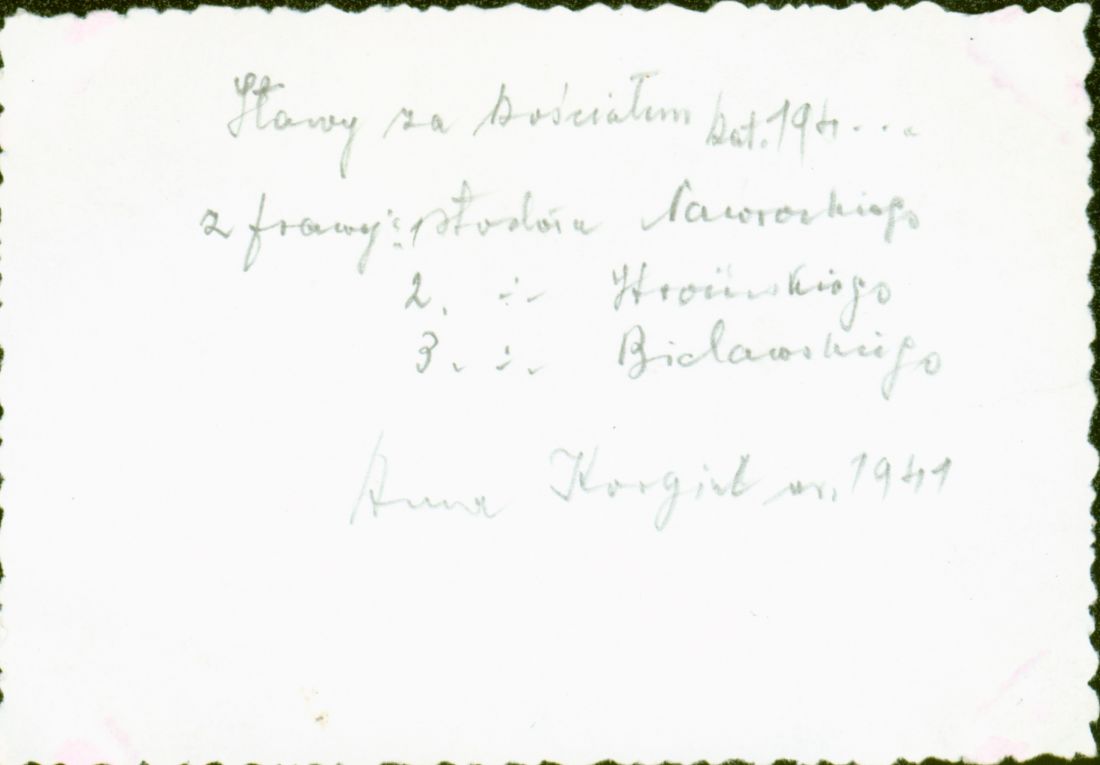 Stawy za kościołem kat. 194...
z prawej: 1 stodoła Nawrockiego
2. -:- Stroińskiego
3. -:- Bielawskiego
Anna Korgiel ur. 1941